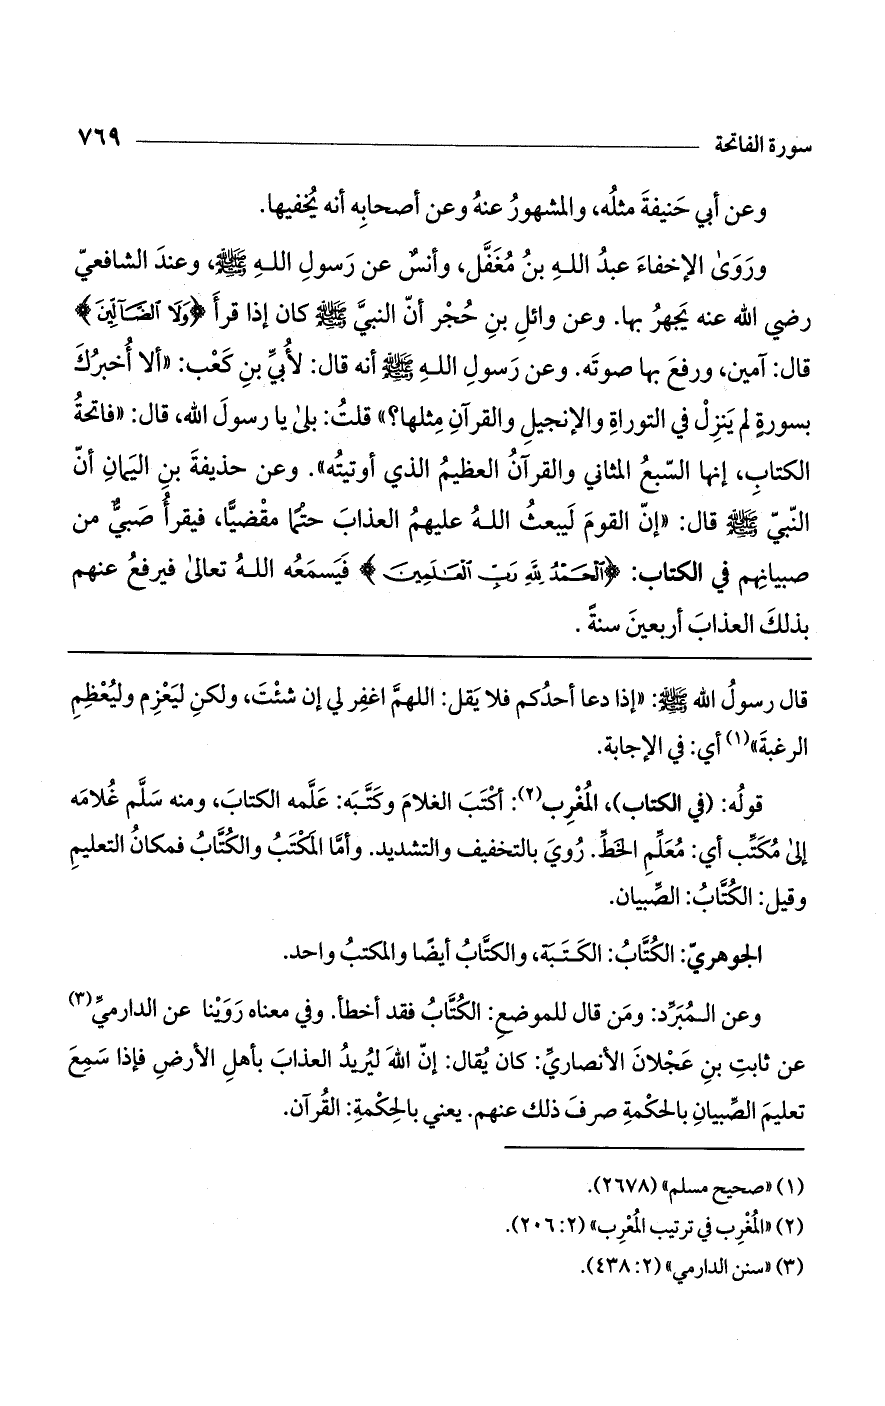 سورة الفاتحة ٧٦٩
وعن أبي حَنيفةَ مثلُه، والمشهورُ عنهُ وعن أصحابِه أنه يُخفيها.
ورَوَىٰ الإخفاءَ عبدُ اللهِ بنُ مُغَفَّل، وأنسٌ عن رَسولِ اللهِ ﷺ، وعندَ الشافعيّ
رضي الله عنه يَجهرُ بها. وعن وائلِ بنِ حُجْر أنّ النبيَّ ﷺ كان إذا قرأَ ﴿وَلَا ٱلضَّآلِّينَ﴾
قال: آمين، ورفعَ بها صوتَه. وعن رَسولِ اللهِ ﷺ أنه قال: لأُبيِّ بنِ كَعْب: «ألا أُخبرُكَ
بسورةٍ لم يَنزِلْ في التوراةِ والإنجيلِ والقرآنِ مِثلها؟» قلتُ: بلىٰ يا رسولَ الله، قال: «فاتحةُ
الكتابِ، إنها السّبعُ المثاني والقرآنُ العظيمُ الذي أوتيتُه». وعن حذيفةَ بنِ اليَمانِ أنّ
النّبيّ ﷺ قال: «إنّ القومَ لَيبعثُ اللهُ عليهمُ العذابَ حتْمًا مقْضيًّا، فيقرأُ صَبيٌّ من
صبيانِهم في الكتاب: ﴿ٱلْحَمْدُ لِلَّهِ رَبِّ ٱلْعَـٰلَمِينَ﴾ فَيَسمَعُه اللهُ تعالىٰ فيرفعُ عنهم
بذلكَ العذابَ أربعينَ سنةً .
قال رسولُ الله ﷺ: «إذا دعا أحدُكم فلا يَقل: اللهمَّ اغفِر لي إن شئْتَ، ولكنِ ليَعْزِم وليُعْظِمِ
الرغبةَ»(١) أي: في الإجابة.
قولُه: (في الكتاب)، المُغْرِب(٢): أكْتَبَ الغلامَ وكَتَّبَه: عَلَّمه الكتابَ، ومنه سَلَّم غُلامَه
إلىٰ مُكَتِّب أي: مُعَلِّمِ الخطِّ. رُويَ بالتخفيف والتشديد. وأمَّا المَكْتَبُ والكُتَّابُ فمكانُ التعليمِ
وقيل: الكُتَّابُ: الصِّبيان.
الجوهريّ: الكُتَّابُ: الكَتَبَة، والكتَّابُ أيضًا والمكتبُ واحد.
وعن المُبَرِّد: ومَن قال للموضعِ: الكُتَّابُ فقد أخطأ. وفي معناه رَوَيْنا عن الدارميِّ(٣)
عن ثابتِ بنِ عَجْلانَ الأنصاريِّ: كان يُقال: إنّ اللهَ ليُريدُ العذابَ بأهلِ الأرضِ فإذا سَمِعَ
تعليمَ الصِّبيانِ بالحكْمةِ صرفَ ذلك عنهم. يعني بالحِكْمةِ: القُرآن.
(١) «صحيح مسلم» (٢٦٧٨).
(٢) «المُغْرِب في ترتيب المُعْرِب» (٢: ٢٠٦).
(٣) «سنن الدارمي» (٢: ٤٣٨).